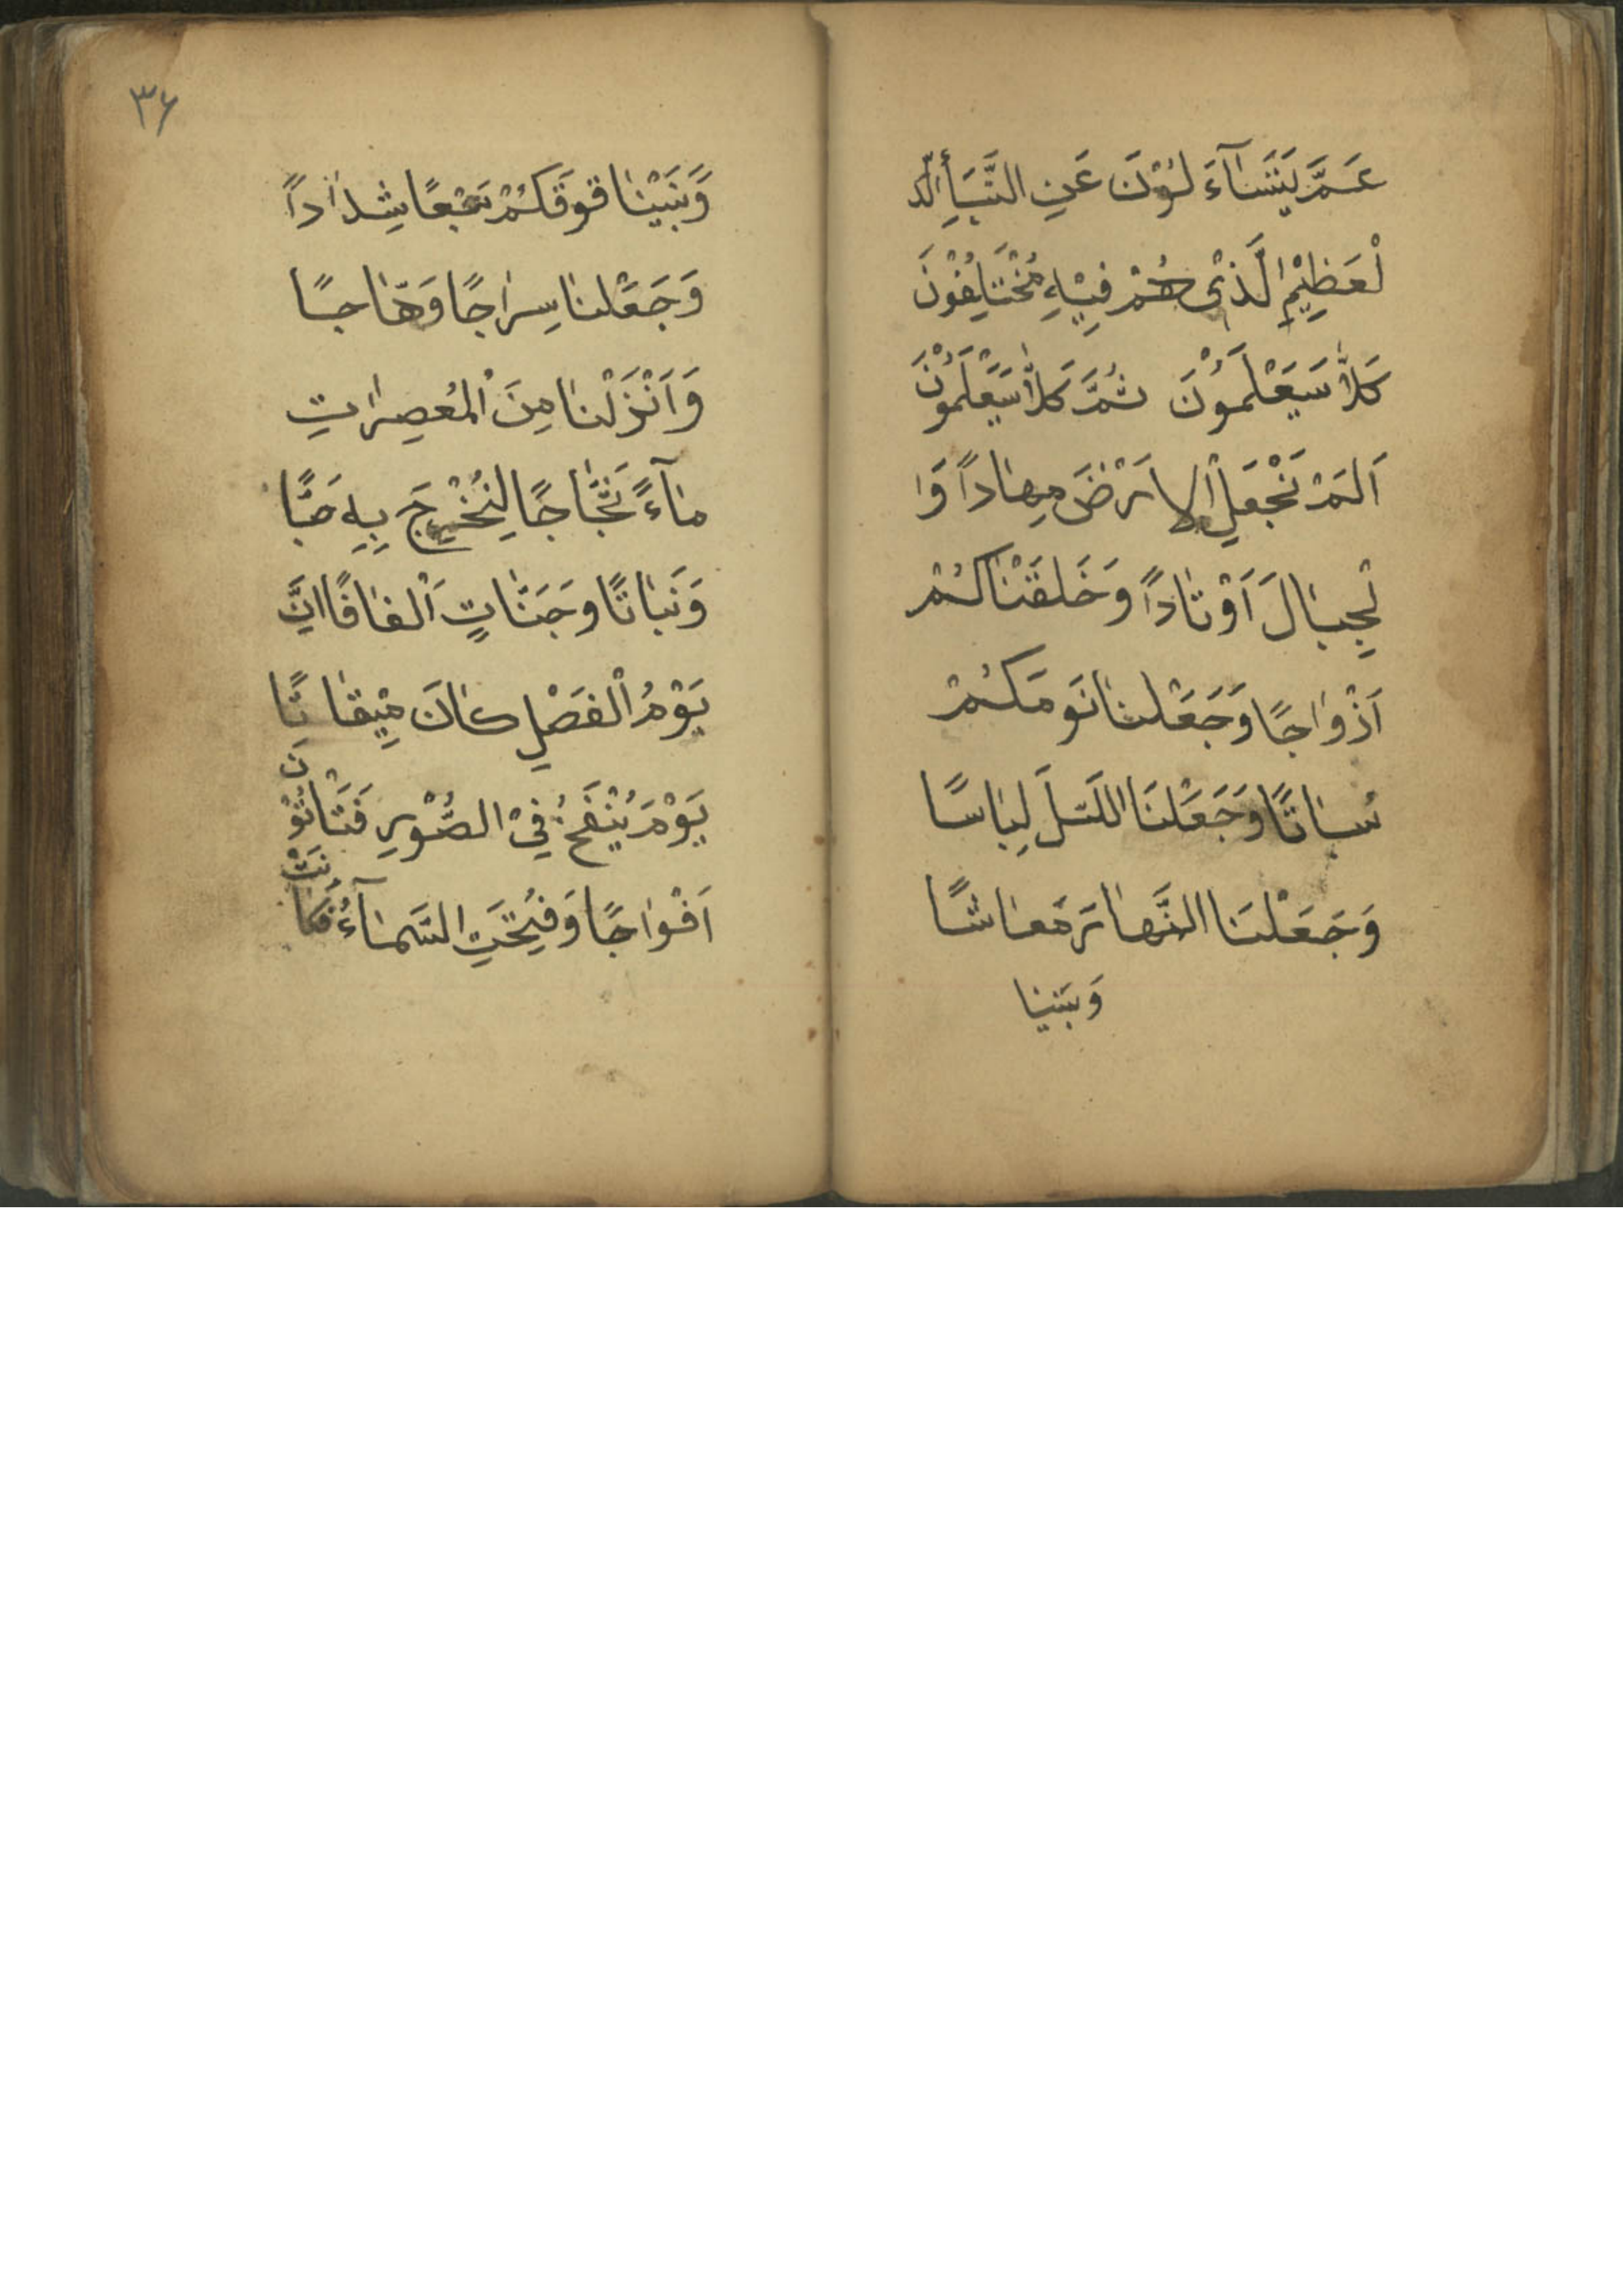 عَمَّ يَتَسَآءَ لُوْنَ عَنِ النَّبَأِ الَّ
لْعَظِيْمِ الَّذْى هُمْ فِيْهِ مُخْتَلِفُوْنَ
كَلاَّ سَيَعْلَمُوْنَ ثُمَّ كَلاَّ سَيَعْلَمُوْنَ
اَلَمْ نَجْعَلِ الاَرْضَ مِهَاداً وَا
لْجِبَالَ اَوْتَاداً وَخَلَقْنَاكُمْ
اَزْوَاجًا وَجَعَلْنَا نَومَكُمْ
سُبَاتًا وَجَعَلْنَا اللَّيْلَ لِبَاسًا
وَجَعَلْنَا النَّهَارَ مَعَاشًا
وَبَنَينا
٣٦
وَّبَنَيْنَا فَوقَكُمْ سَبْعًا شِدَاداً
وَجَعَلْنَا سِرَاجًا وَهَّاجًا
وَاَنْزَلْنَا مِنَ الْمُعصِرَاتِ
مَآءً ثَجَّاجًا لِنُخْرِجَ بِهِ حَبًّا
وَنَبَاتًا وَجَنَّاتٍ اَلْفَافًا اِنَّ
يَوْمُ الْفَصْلِ كَانَ مِيْقَاتًا
يَوْمَ يُنْفَخُ فِىْ الصُّوْرِ فَتَأتُوْنَ
اَفْوَاجًا وَفُتِحَتِ السَّمَآءُ فَكَانَتْ